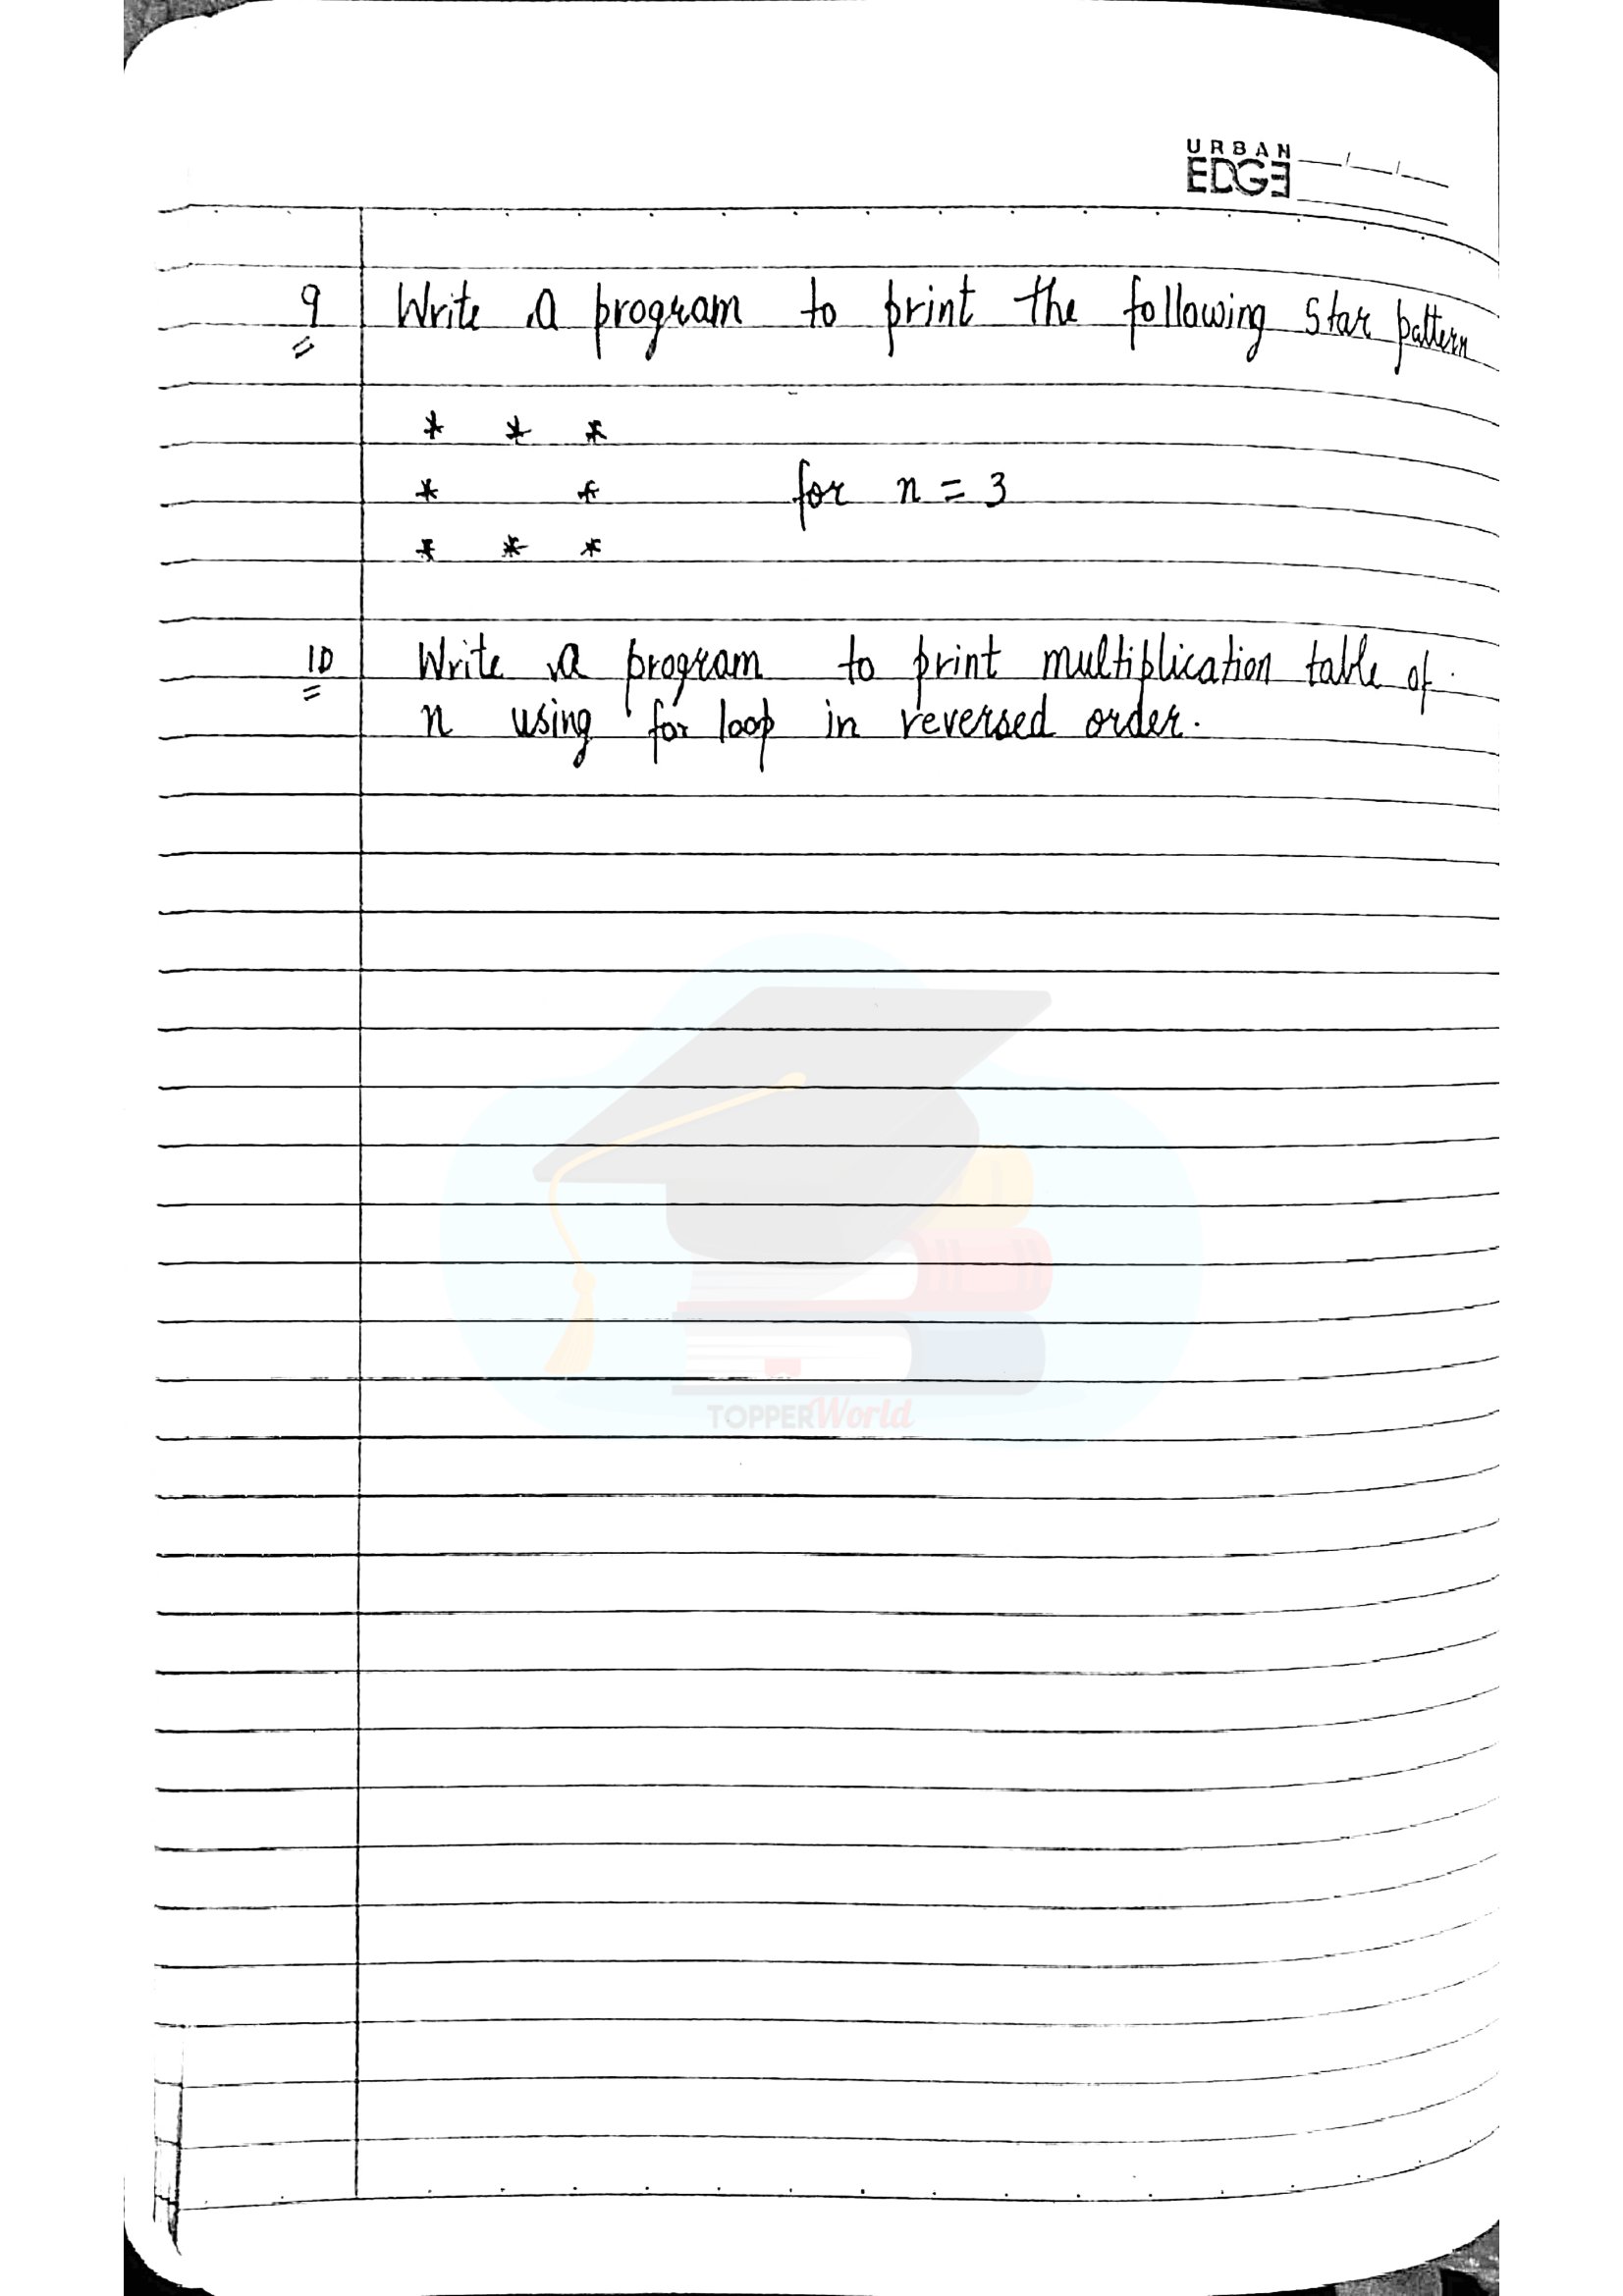 URBAN
EDGE
9 Write a program to print the following Star pattern
* * *
* * for n = 3
* * *
10 Write a program to print multiplication table of
n using for loop in reversed order.
TOPPERWorld